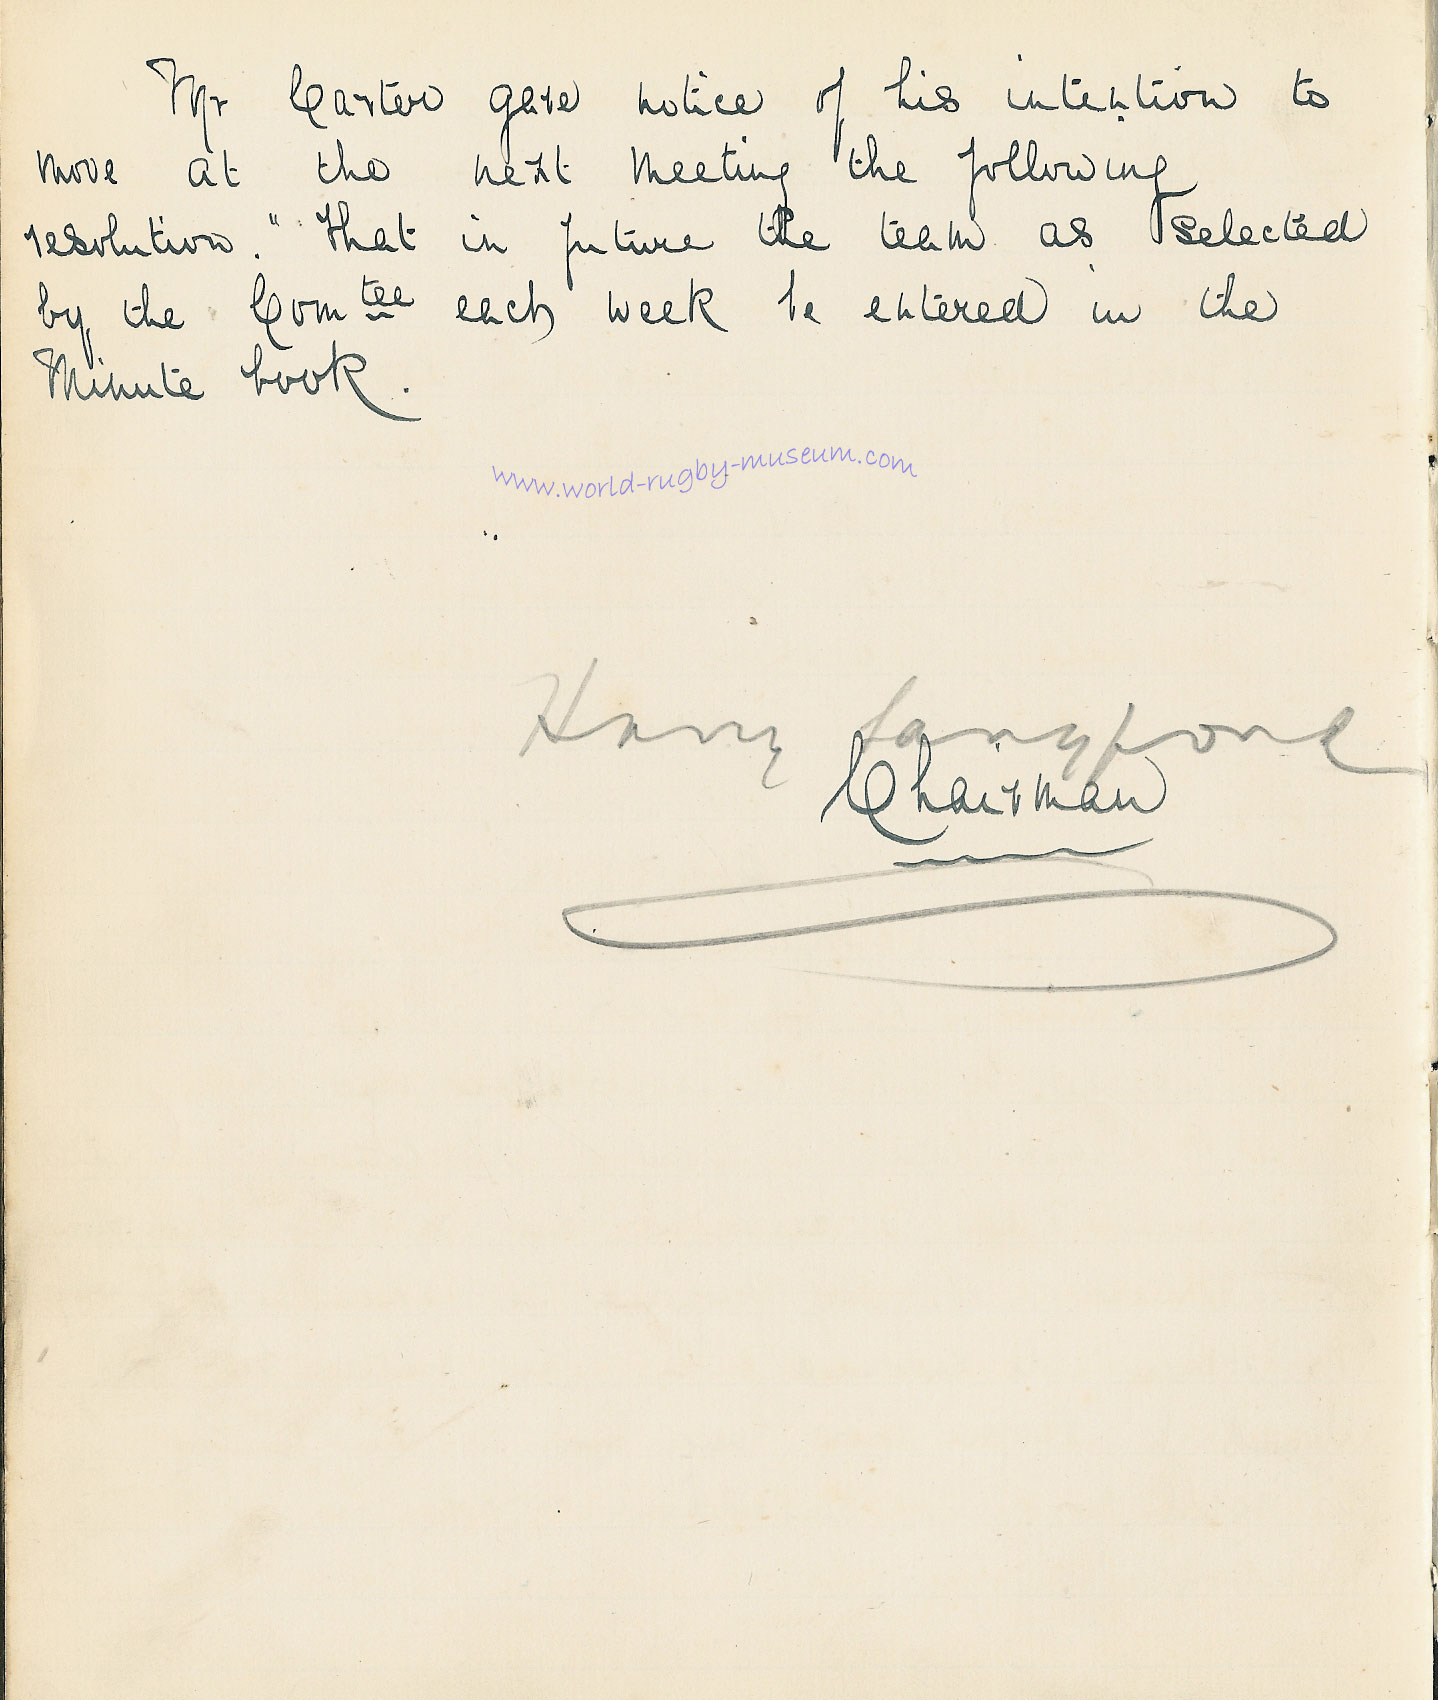 Mr Carter gave notice of his intention to
move at the next meeting the following
resolution. " That in future the team as selected
by the Comtee each week be entered in the
Minute book.
www.world-rugby-museum.com
Harry Langford
Chairman